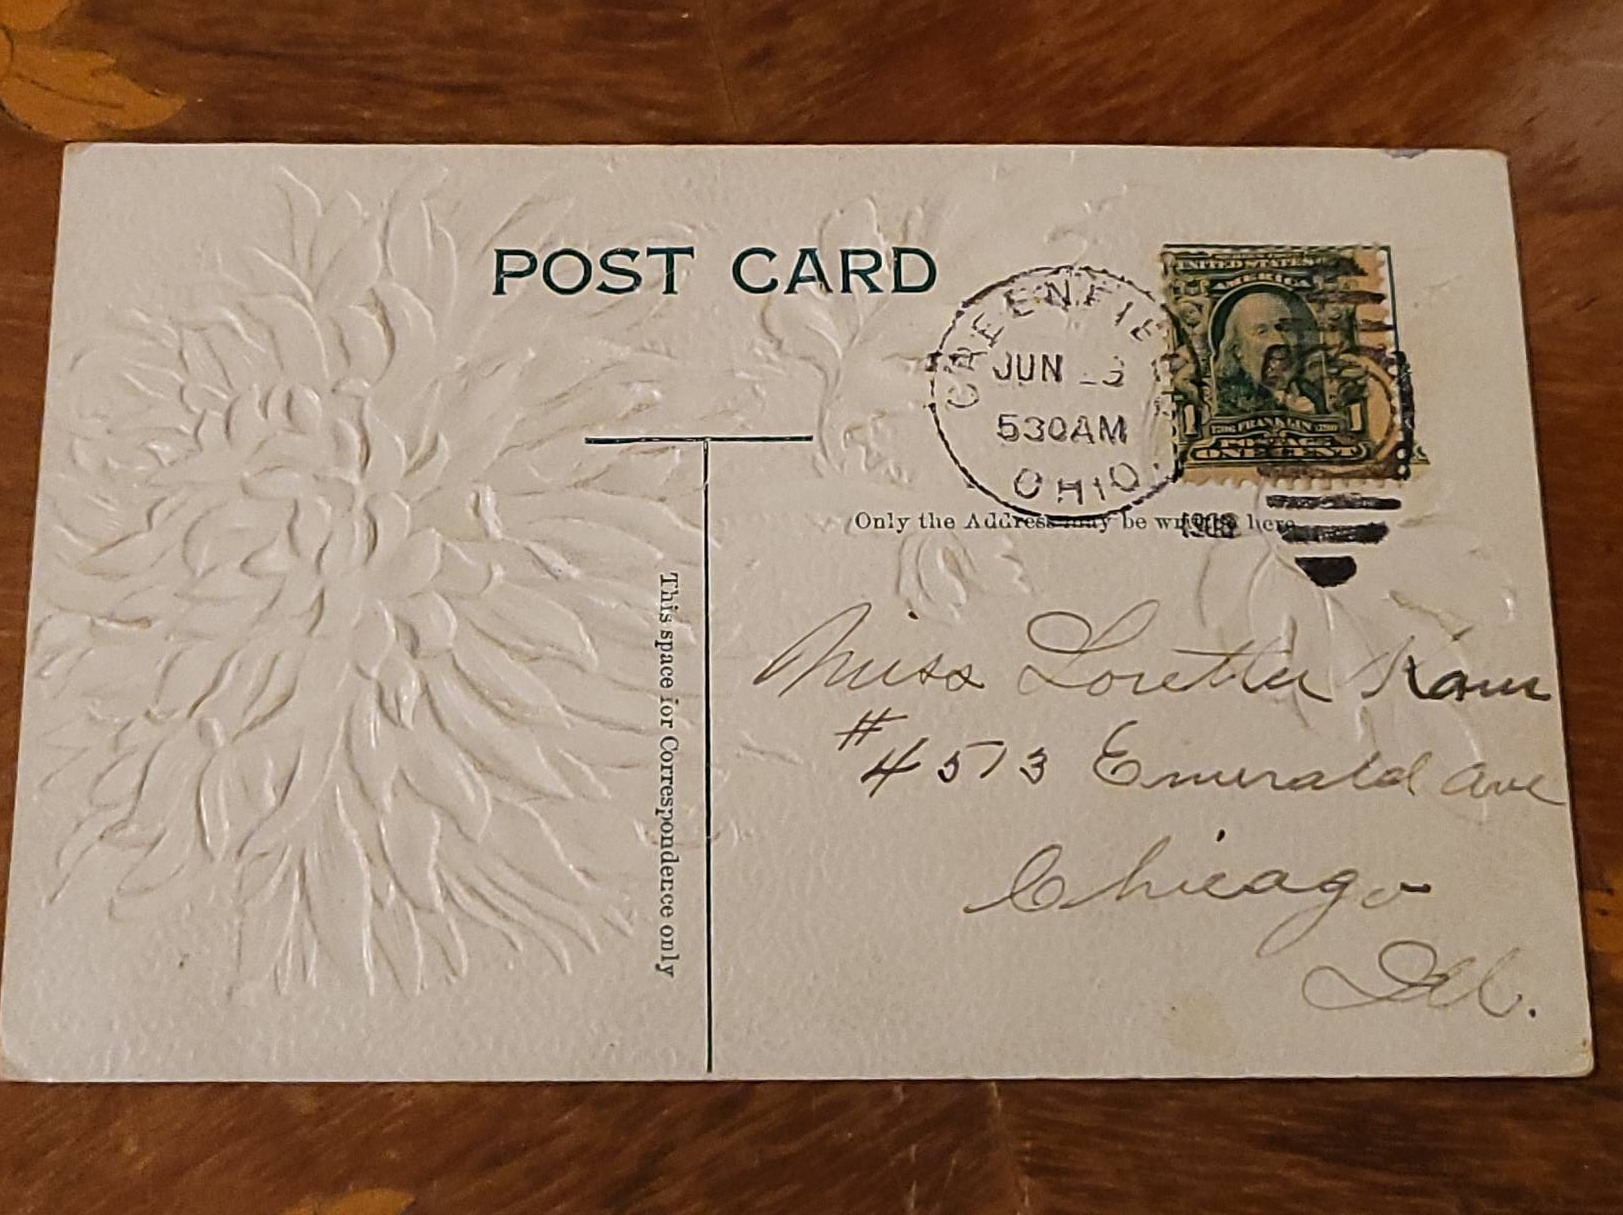 POST CARD
GREENFIE
JUN
530AM
OHIO
UNITED STATES OF
AMERICA
1 FRANKLIN 1
POSTAGE
ONE CENT
Only the Address may be written here
This space for Correspondence only
Miss Loretta
# 4513 Emerald Ave
Chicago
Ill.